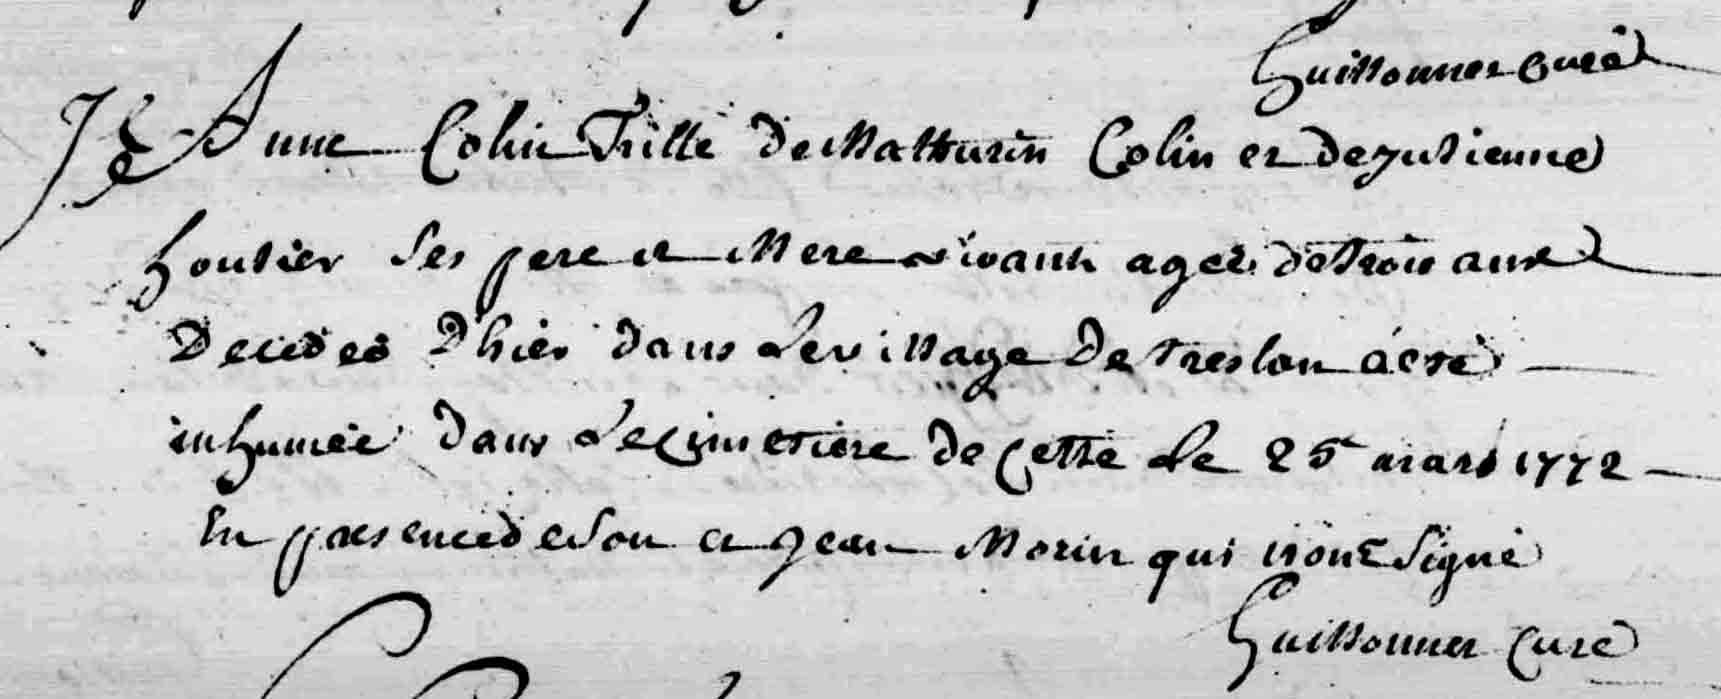 Guillonner curé
Anne Colin Fille de Mathurin Colin et de julienne
houtier Ses pere et Mere vivants ageé de trois ans
Decedeé D'hier dans le village de Treslan a été
inhumeé dans le cimetiere de cette le 25 mars 1772
En presence de son et Jean Morin qui n'ont Signé
Guillonner Curé